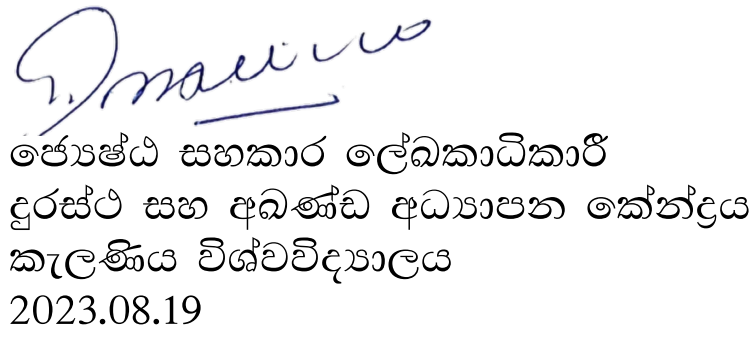 ජ්‍යෙෂ්ඨ සහකාර ලේඛකාධිකාරී
දුරස්ථ සහ අඛණ්ඩ අධ්‍යාපන කේන්ද්‍රය
කැලණිය විශ්වවිද්‍යාලය
2023.08.19